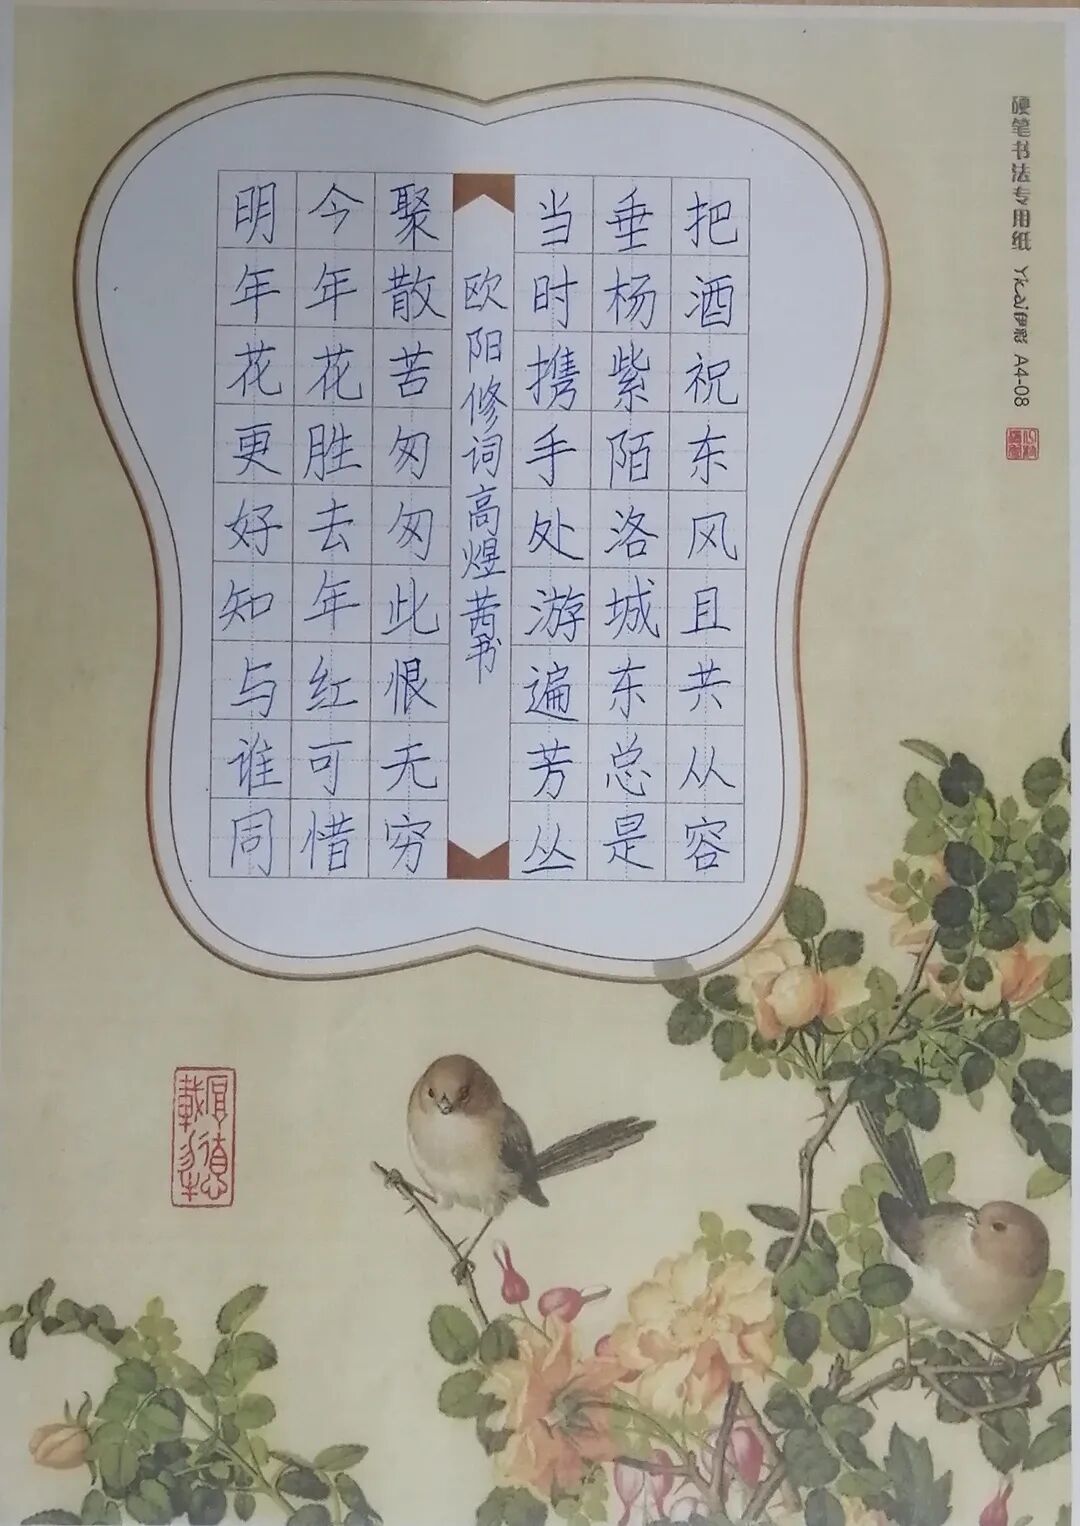 把酒祝东风且共从容
垂杨紫陌洛城东总是
当时携手处游遍芳丛
欧阳修词高煜茜书
聚散苦匆匆此恨无穷
今年花胜去年红可惜
明年花更好知与谁同
硬笔书法专用纸
A4-08
厚德载物